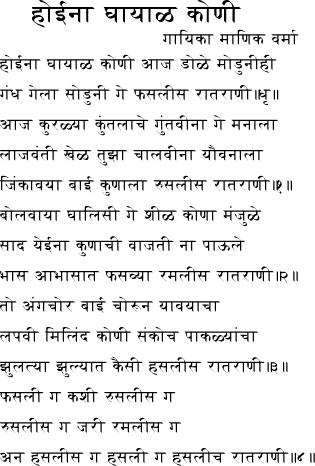 होईना घायाळ कोणी
गायिका माणिक वर्मा
होईना घायाळ कोणी आज डोळे मोडुनीही
गंध गेला सोडुनी गे फसलीस रातराणी॥धृ॥
आज कुरळ्या कुंतलाचे गुंतवीना गे मनाला
लाजवंती खेळ तुझा चालवीना यौवनाला
जिंकावया बाई कुणाला रुसलीस रातराणी॥१॥
बोलवाया घालिसी गे शीळ कोणा मंजुळे
साद येईना कुणाची वाजती ना पाऊले
भास आभासात फसव्या रमलीस रातराणी॥२॥
तो अंगचोर बाई चोरून यावयाचा
लपवी मिलिंद कोणी संकोच पाकळ्यांचा
झुलत्या झुल्यात कैसी हसलीस रातराणी॥३॥
फसली ग कशी रुसलीस ग
रुसलीस ग जरी रमलीस ग
अन हसलीस ग हसली ग हसलीच रातराणी॥४॥